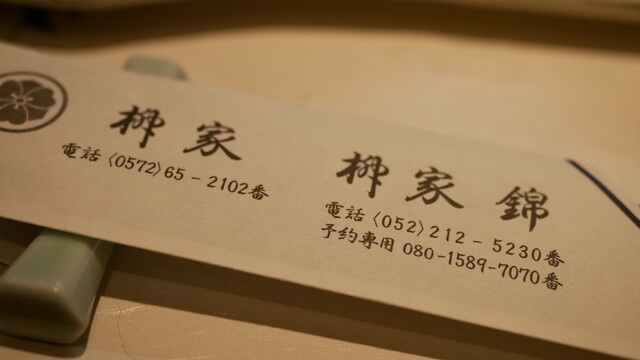 柳家
電話〈0572〉65-2102番
柳家 錦
電話〈052〉212-5230番
予約専用 080-1589-7070番